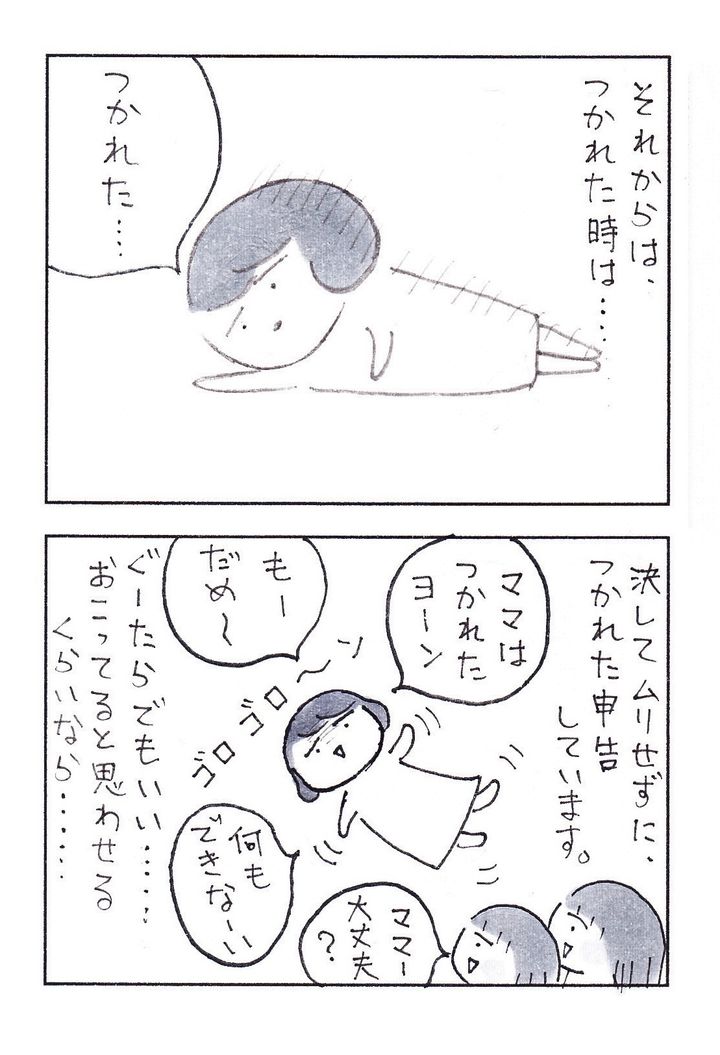 それからは、
つかれた時は‥‥
つかれた‥‥
決してムリせずに、
つかれた申告
しています。
ママは
つかれた
ヨーン
もー
だめ〜
ゴロゴロ〜ン
何も
できなーい
ママー
大丈夫
?
ぐーたらでもいい‥‥‥
おこってると思わせる
くらいなら‥‥‥‥